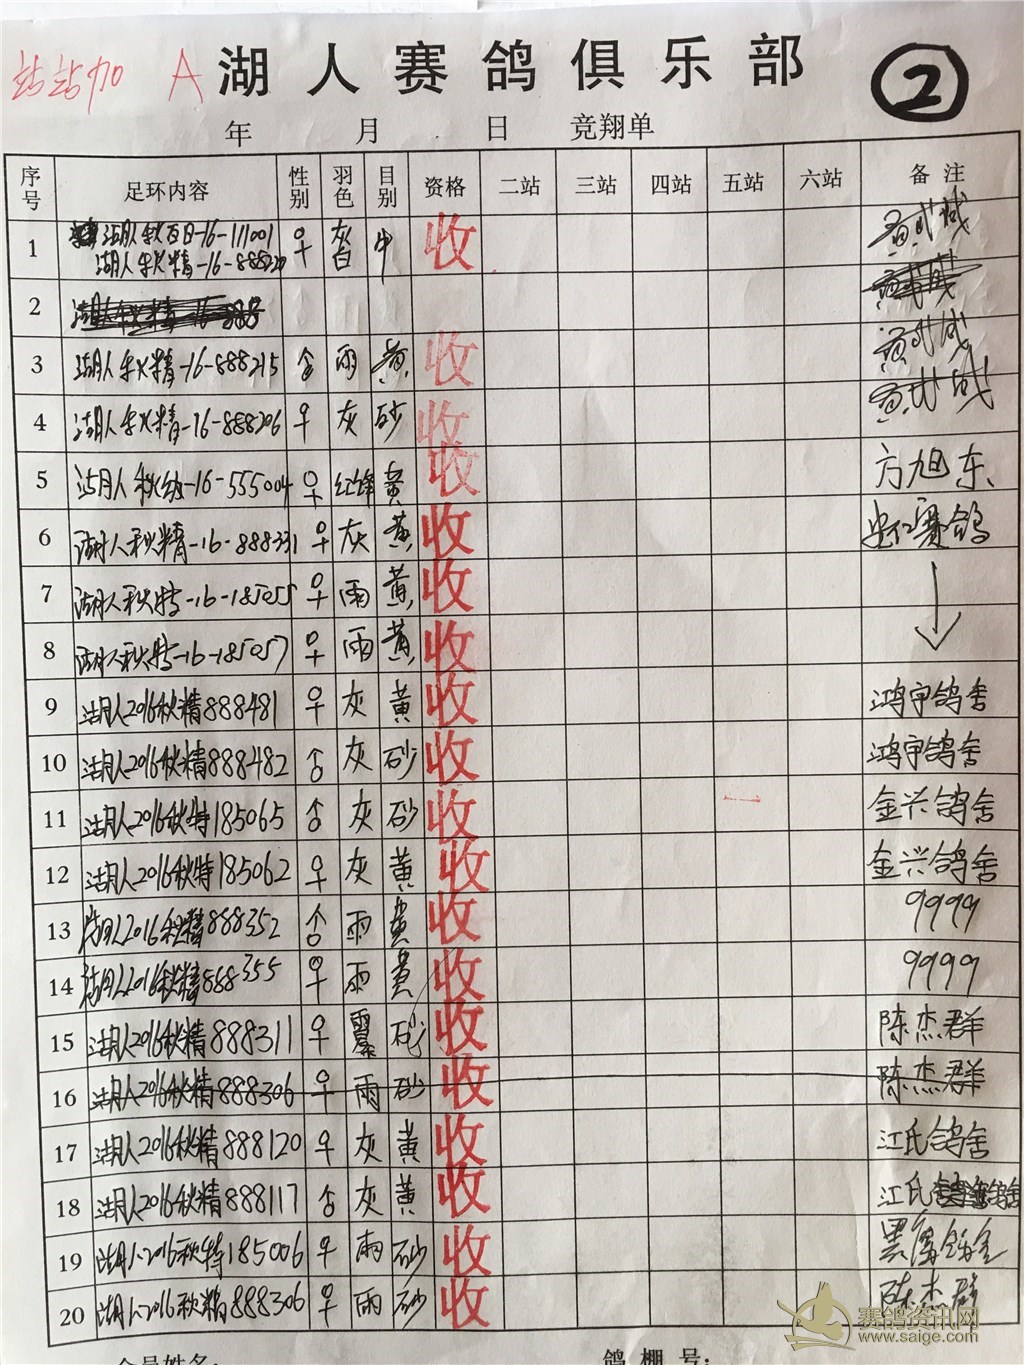 站站加 A 湖人赛鸽俱乐部 2
年 月 日 竞翔单
序号 足环内容 性别 羽色 目别 资格 二站 三站 四站 五站 六站 备注
1 湖人秋百日-16-111001 ♀ 收
湖人秋精-16-888220
2
3 湖人秋精-16-888215 ♂ 雨 黄 收
4 湖人秋精-16-888206 ♀ 灰 砂 收
5 湖人秋 -16-555004 ♀ 红绛 黄 收 方旭东
6 湖人秋精-16-888331 ♀ 灰 黄 收 赛鸽
7 湖人秋特-16-185055 ♀ 雨 黄 收
8 湖人秋特-16-185057 ♀ 雨 黄 收
9 湖人2016秋精888481 ♀ 灰 黄 收 鸿宇鸽舍
10 湖人2016秋精888482 ♂ 灰 砂 收 鸿宇鸽舍
11 湖人2016秋特185065 ♂ 灰 砂 收 一 金兴鸽舍
12 湖人2016秋特185062 ♀ 灰 黄 收 金兴鸽舍
13 湖人2016秋精888352 ♂ 雨 黄 收 9999
14 湖人2016秋精888355 ♀ 雨 黄 收 9999
15 湖人2016秋精888311 ♀ 砂 收 陈杰群
16 湖人2016秋精888306 ♀ 雨 砂 收 陈杰群
17 湖人2016秋精888120 ♀ 灰 黄 收 江氏鸽舍
18 湖人2016秋精888117 ♂ 灰 黄 收 江氏 鸽舍
19 湖人2016秋特185006 ♀ 雨 砂 收
20 湖人2016秋精888306 ♀ 雨 砂 收 陈杰群
会员姓名: 鸽棚号:
赛鸽资讯网
www.saige.com